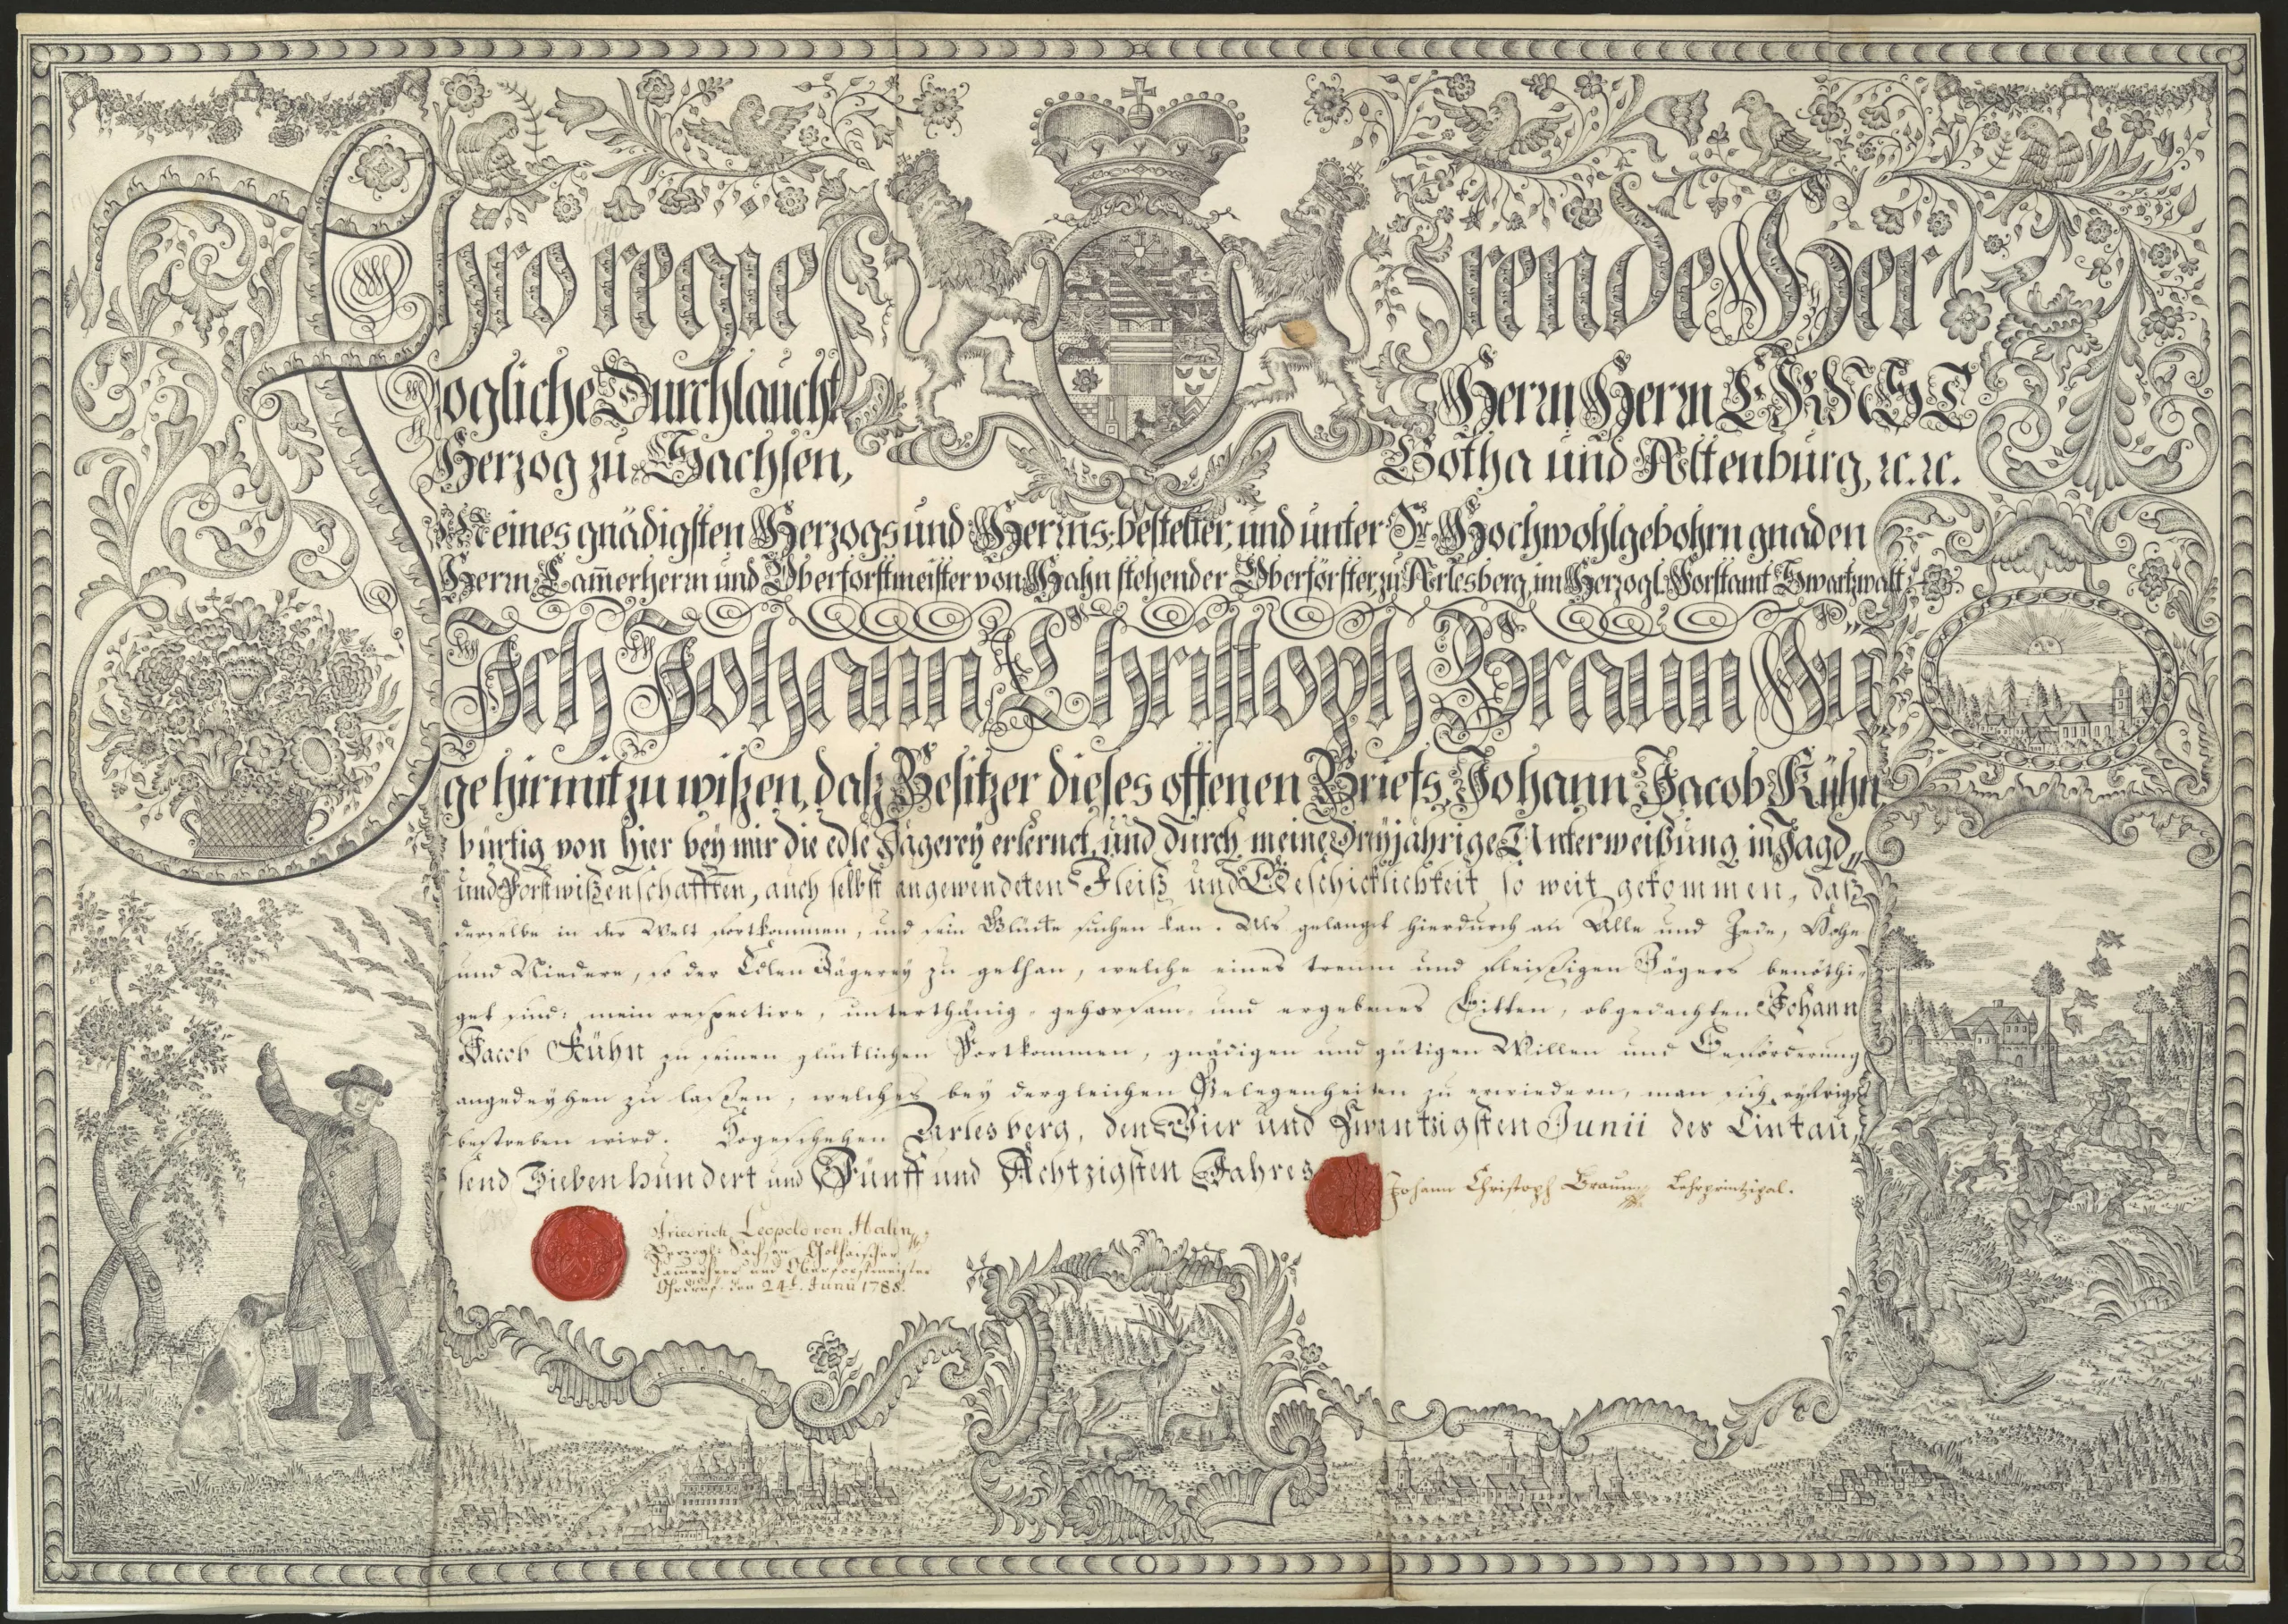 Ihro regierende Her
zogliche Durchlaucht Herrn Herrn ERNST
Herzog zu Sachsen, Gotha und Altenburg, ꝛc. ꝛc.
Meines gnädigsten Herzogs und Herrns, bestelter, und unter Sr. Hochwohlgebohrn gnaden
Herrn Cam̄erherrn und Oberforstmeister von Hahn stehender Oberförster, zu Arlesberg, im Herzogl. Forstamt Swartzwalt,
Ich Johann Christoph Braun Fü
ge hirmit zu wißen, daß Besitzer dieses offenen Briefs, Johann Jacob Kühn
bürtig von hier bey mir die edle Jägerey erlernet, und durch meine Dreyjährige Unterweißung in Jagd
und Forstwißenschafften, auch selbst angewendeten Fleiß und Geschicklichkeit so weit gekommen, daß
derselbe in der Welt fortkommen, und sein Glücke suchen kan. Als gelanget hierdurch an Alle und Jede, Hohe
und Niedere, so der Edlen Jägerey zu gethan, welche eines treuen und fleißigen Jägers benöthi-
get sind: mein respective, unterthänig- gehorsam- und ergebenes Bitten, obgedachten Johann
Jacob Kühn zu seinen glücklichen Fortkommen, gnädigen und gütigen Willen und Beförderung
angedeyhen zu laßen, welches bey dergleichen Gelegenheiten zu erwiedern, man sich eyfrigst
bestreben wird. Sogeschehen Arlesberg, den Vier und Zwentzigsten Junii des Eintau,
send Sieben hundert und Fünff und Achtzigsten Jahres
Johann Christoph Braun Lehrprintzipal.
Friedrich Leopold von Hahn
Herzogl. Sachsen Gothaischer
Cammerherr und Oberforstmeister
Ohrdruf. den 24t. Junii 1788.